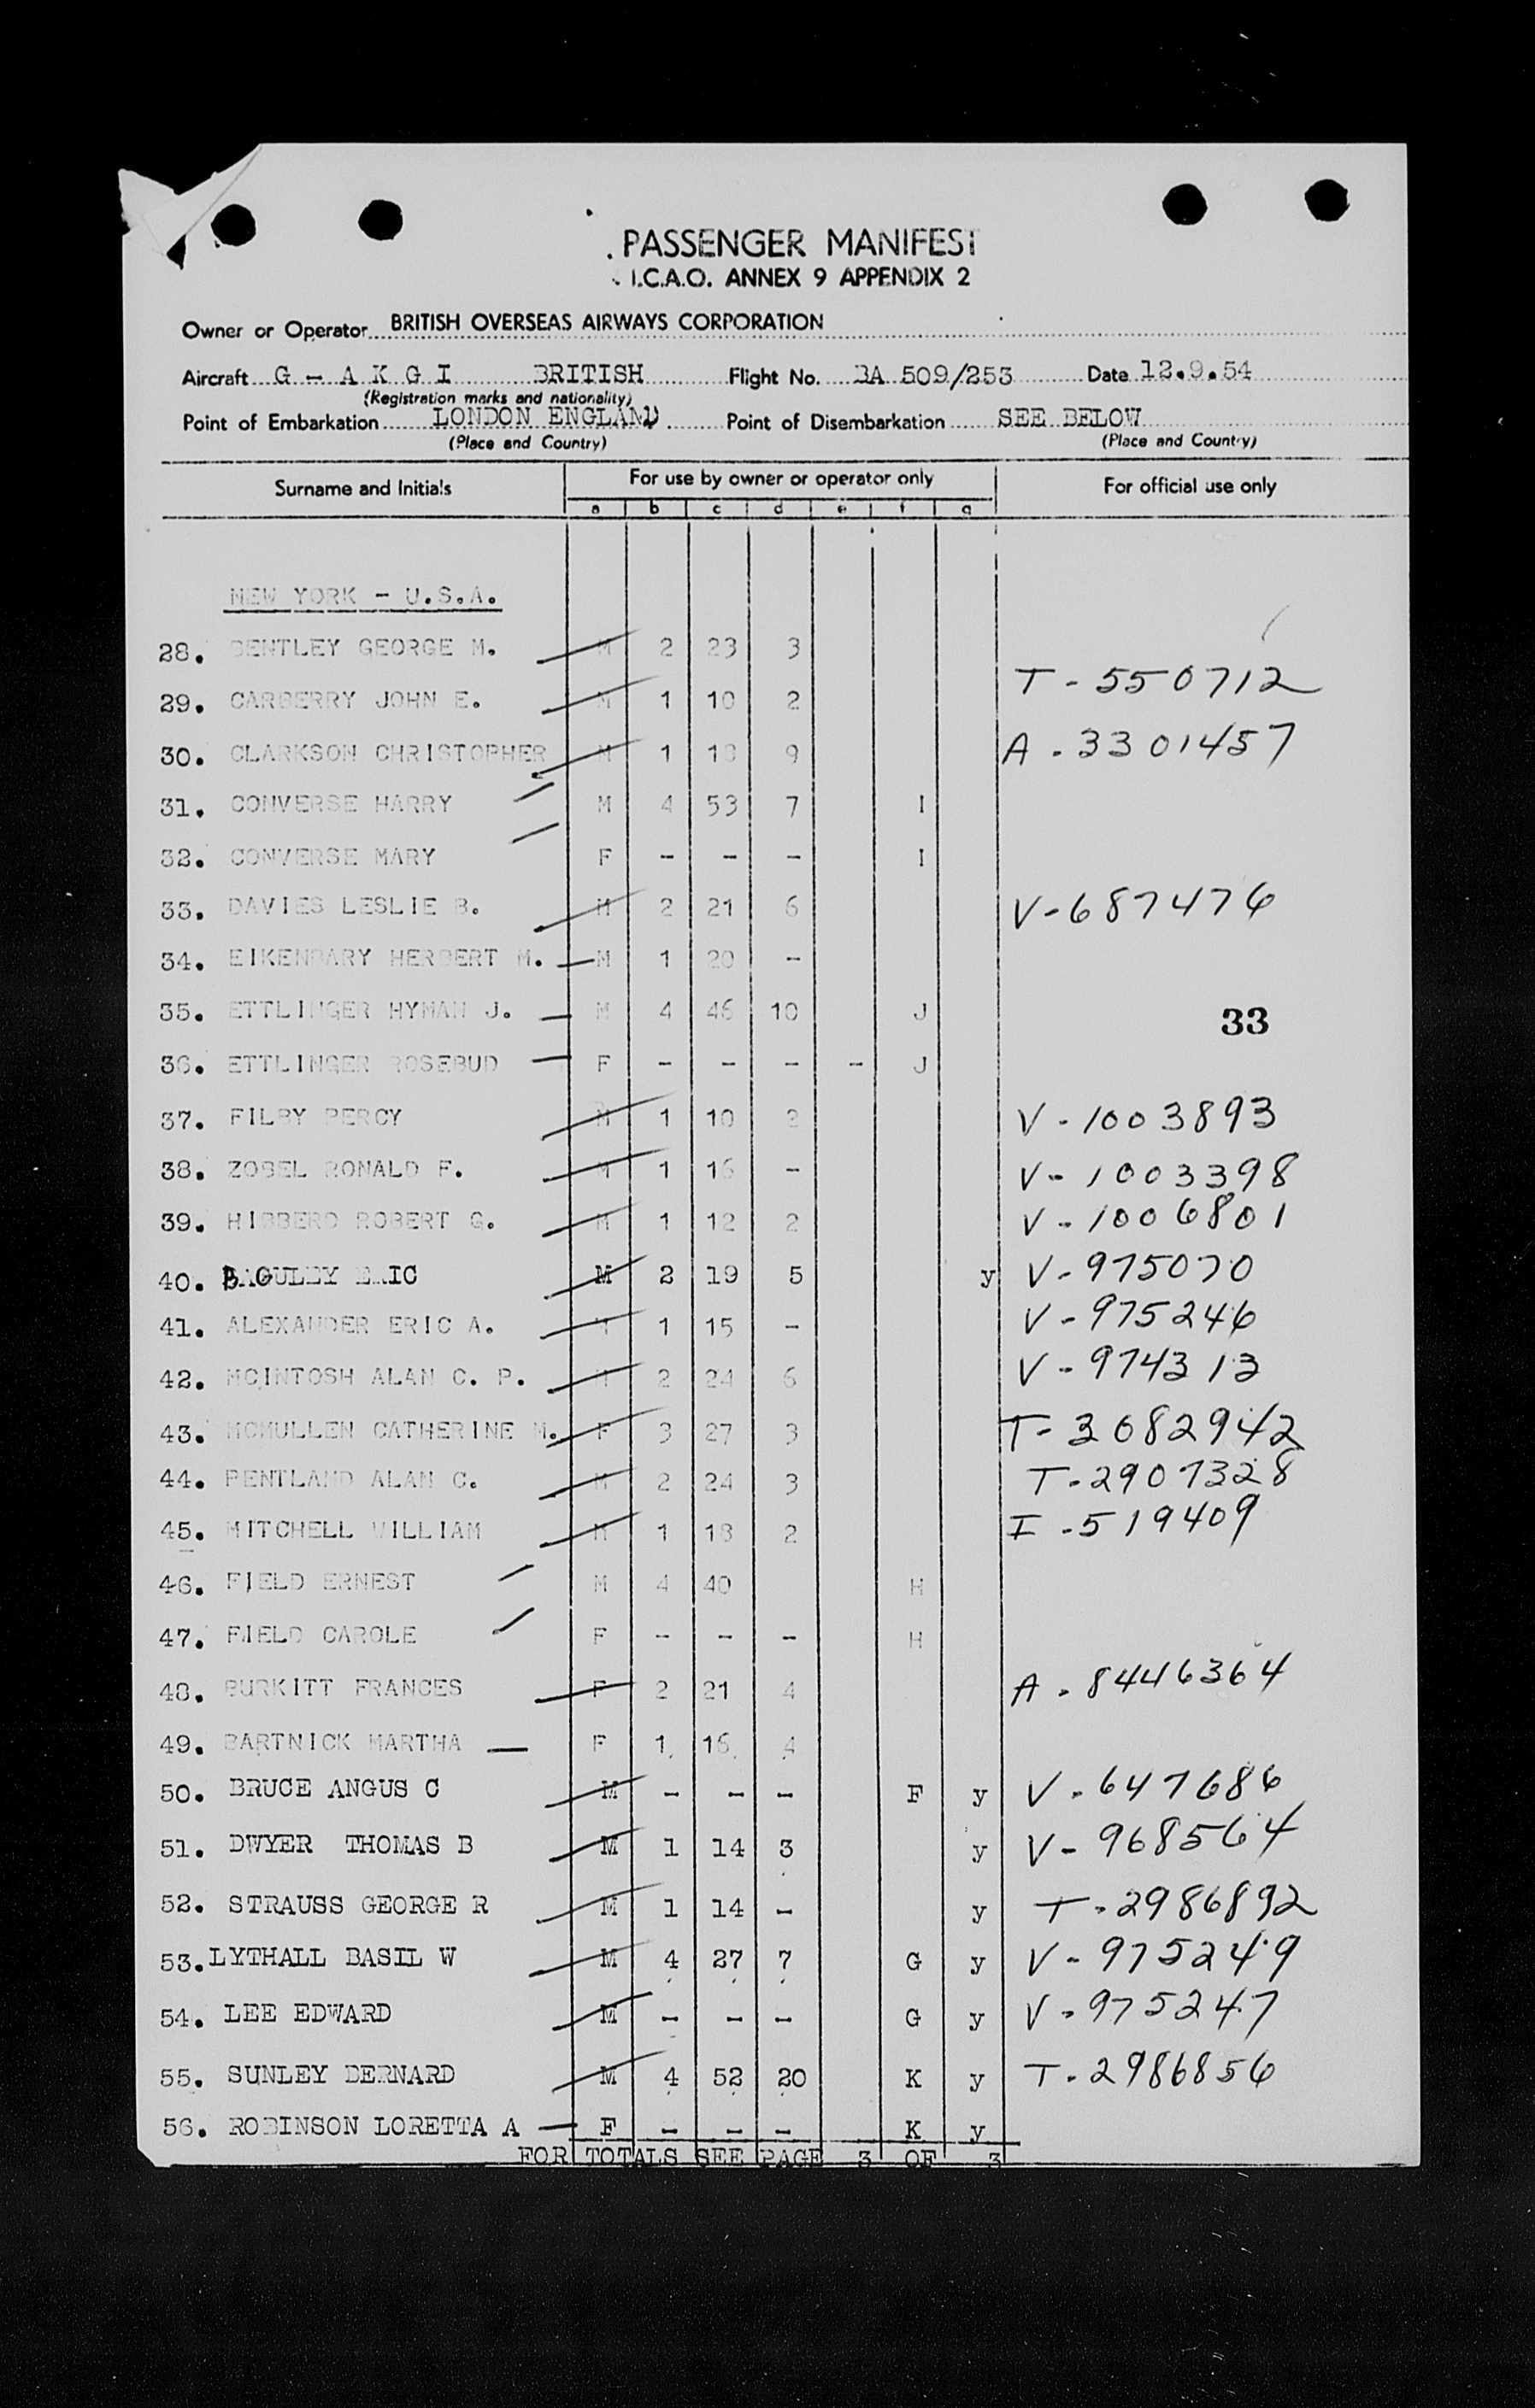 PASSENGER MANIFEST
I.C.A.O. ANNEX 9 APPENDIX 2
Owner or Operator BRITISH OVERSEAS AIRWAYS CORPORATION
Aircraft G - A K G I BRITISH Flight No. BA 509/253 Date 12.9.54
(Registration marks and nationality)
Point of Embarkation LONDON ENGLAND Point of Disembarkation SEE BELOW
(Place and Country) (Place and Country)
Surname and Initials For use by owner or operator only For official use only
a b c d e f g
NEW YORK - U.S.A.
28. BENTLEY GEORGE M. M 2 23 3
T - 550712
29. CARBERRY JOHN E. M 1 10 2
30. CLARKSON CHRISTOPHER M 1 18 9 A - 3301457
31. CONVERSE HARRY M 4 53 7 I
32. CONVERSE MARY F - - - I
33. DAVIES LESLIE B. M 2 21 6 V-687476
34. EIKENBARY HERBERT M. M 1 20 -
35. ETTLINGER HYMAN J. M 4 46 10 J 33
36. ETTLINGER ROSEBUD F - - - - J
37. FILBY PERCY M 1 10 2 V - 1003893
38. ZOBEL RONALD F. M 1 16 - V - 1003398
39. HIBBERD ROBERT G. M 1 12 2 V - 1006801
40. BAGULEY ERIC M 2 19 5 y V - 975070
41. ALEXANDER ERIC A. M 1 15 - V - 975246
42. MCINTOSH ALAN C. P. M 2 24 6 V - 974313
43. MCMULLEN CATHERINE M. F 3 27 3 T - 3082942
44. PENTLAND ALAN C. M 2 24 3 T - 2907328
45. MITCHELL WILLIAM M 1 18 2 I - 519409
46. FIELD ERNEST M 4 40 H
47. FIELD CAROLE F - - - H
48. BURKITT FRANCES F 2 21 4 A - 8446364
49. BARTNICK MARTHA F 1 16 4
50. BRUCE ANGUS C M - - - F y V - 647686
51. DWYER THOMAS B M 1 14 3 y V - 968564
52. STRAUSS GEORGE R M 1 14 - y T - 2986892
53. LYTHALL BASIL W M 4 27 7 G y V - 975249
54. LEE EDWARD M - - - G y V - 975247
55. SUNLEY BERNARD M 4 52 20 K y T - 2986856
56. ROBINSON LORETTA A F - - - K y
FOR TOTALS SEE PAGE 3 OF 3